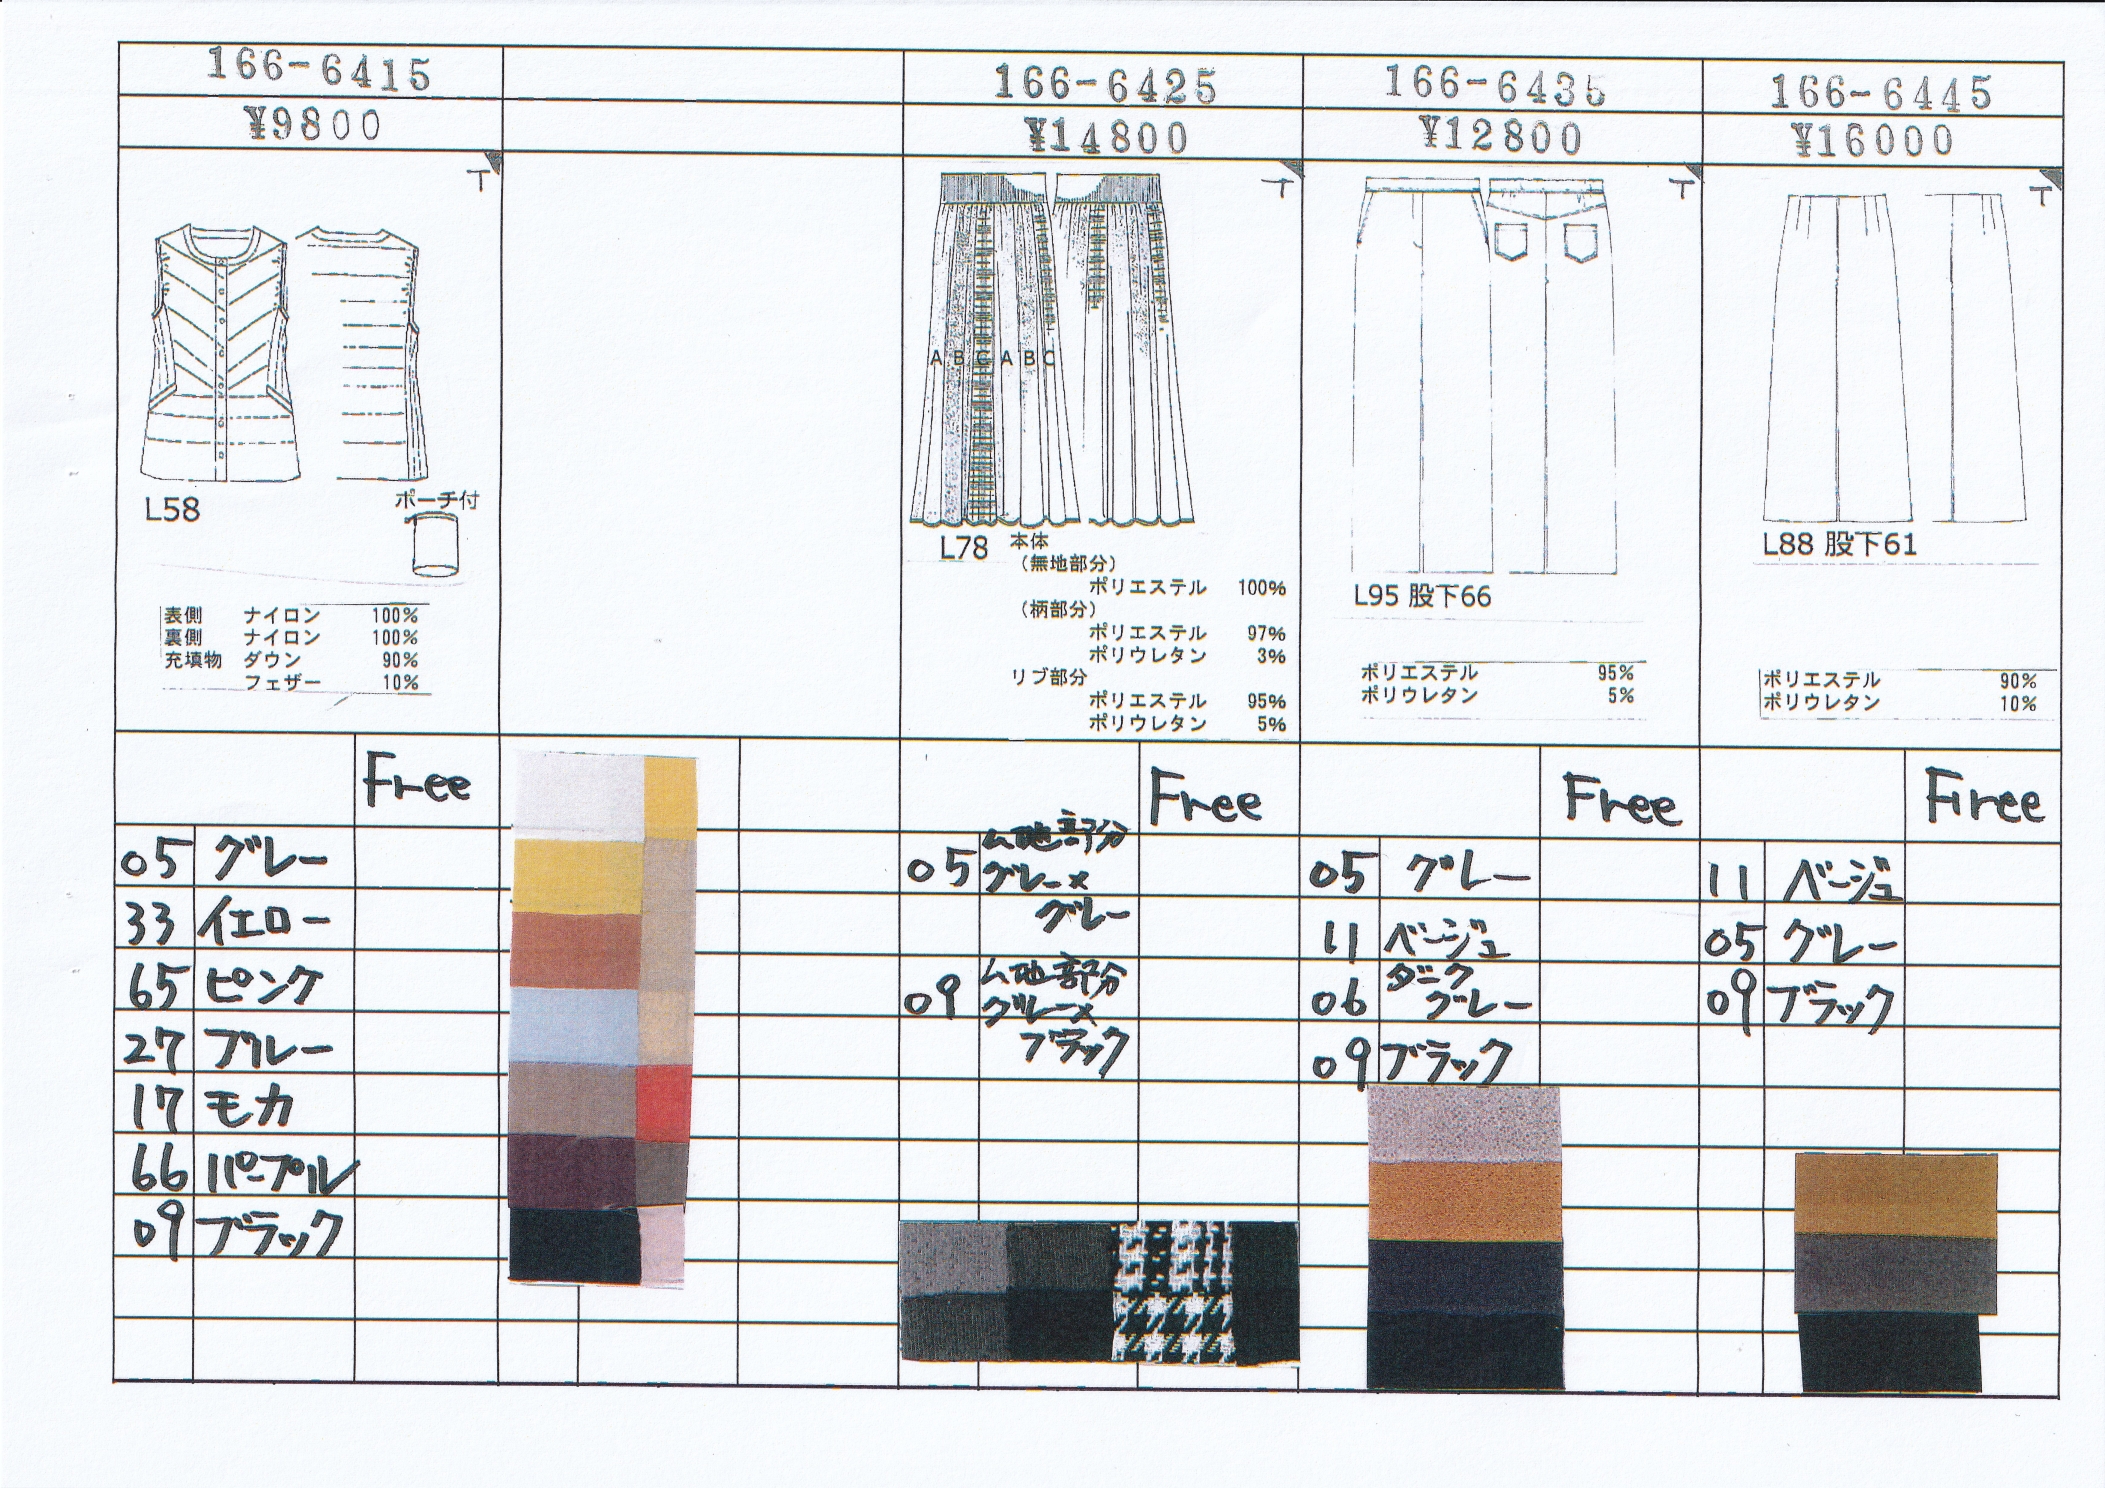 166-6415
¥9800
T
L58
ポーチ付
表側 ナイロン 100%
裏側 ナイロン 100%
充填物 ダウン 90%
フェザー 10%
Free
05 グレー
33 イエロー
65 ピンク
27 ブルー
17 モカ
66 パープル
09 ブラック
166-6425
¥14800
T
A B C A B C
L78 本体
(無地部分)
ポリエステル 100%
(柄部分)
ポリエステル 97%
ポリウレタン 3%
リブ部分
ポリエステル 95%
ポリウレタン 5%
Free
ム地部分
05 グレー×
グレー
ム地部分
09 グレー×
ブラック
166-6435
¥12800
T
L95 股下66
ポリエステル 95%
ポリウレタン 5%
Free
05 グレー
11 ベージュ
ダーク
06 グレー
09 ブラック
166-6445
¥16000
T
L88 股下61
ポリエステル 90%
ポリウレタン 10%
Free
11 ベージュ
05 グレー
09 ブラック